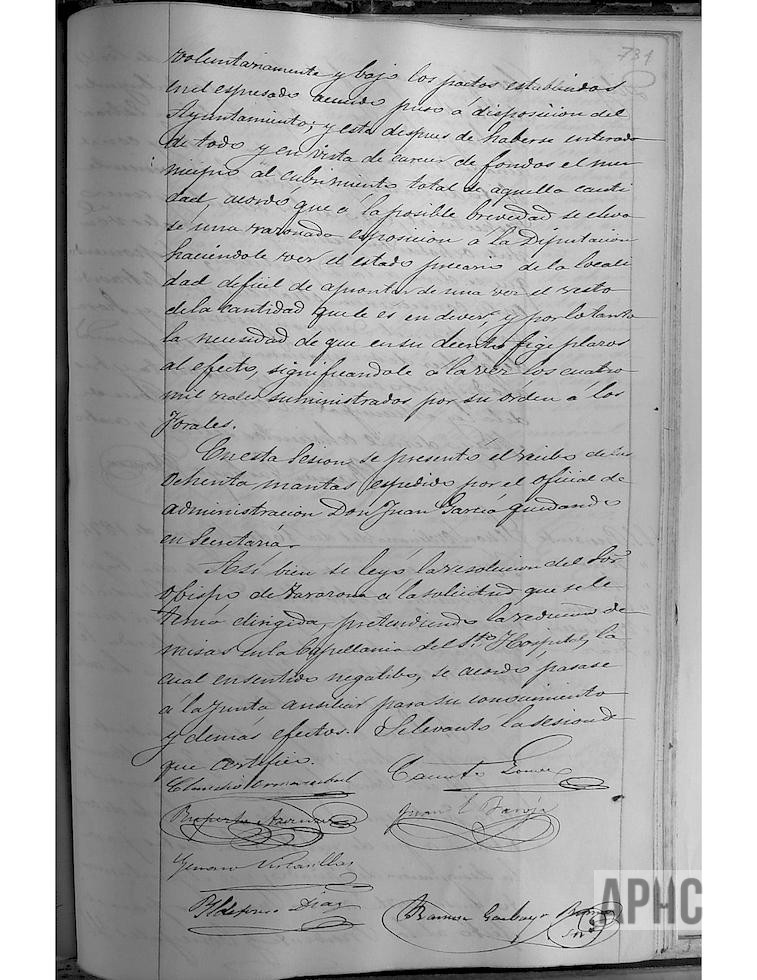 731
voluntariamente y bajo los pactos establecidos
en el espresado acuerdo puso á disposicion del
Ayuntamiento; y esta despues de haberse enterado
de todo y en vista de carecer de fondos el mu
nicipio al cubrimiento total de aquella canti
dad, acordó que á la posible brevedad se eleva
se una razonada esposicion á la Diputacion
haciéndole ver el estado precario de la locali
dad dificil de aprontar de una vez el resto
de la cantidad que le es en dever, y por lo tanto
la necesidad de que en su decreto fige plazos
al efecto, significandole á la vez los cuatro
mil reales suministrados por su órden á los
Forales.
En esta Sesion se presentó el recibo de las
ochenta mantas espedido por el oficial de
administracion Don Juan García quedando
en Secretaría.
Asi bien se leyó la resolucion del Sor
obispo de Tarazona á la solicitud que se le
tenia dirigida, pretendiendo la reduccion de
misas en la Capellania del Sto Hospital, la
cual en sentido negatibo, se acordó pasase
á la Junta ausiliar para su conocimiento
y demás efectos. Se levantó la sesion de
que certifico.
Claudio
Canuto Gomez
Ruperto
Juan
Genaro
Ildefonso Diaz
Ramon
APHC